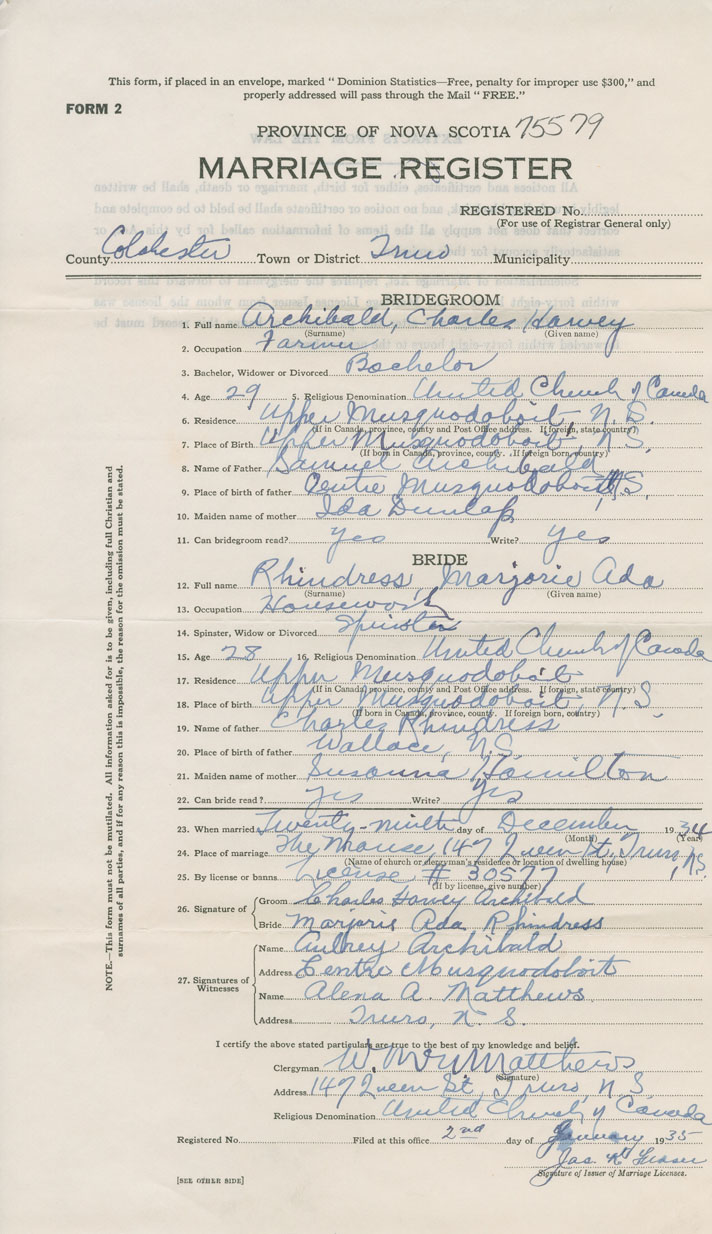 This form, if placed in an envelope, marked “ Dominion Statistics—Free, penalty for improper use $300,” and
properly addressed will pass through the Mail “ FREE.”
FORM 2
PROVINCE OF NOVA SCOTIA 75579
MARRIAGE REGISTER
REGISTERED No.
(For use of Registrar General only)
County Colchester Town or District Truro Municipality
BRIDEGROOM
1. Full name Archibald, Charles Harvey
(Surname) (Given name)
2. Occupation Farmer
3. Bachelor, Widower or Divorced Bachelor
4. Age 29 5. Religious Denomination United Church of Canada
6. Residence Upper Musquodoboit, N. S.
(If in Canada, province, county and Post Office address. If foreign, state country)
7. Place of Birth Upper Musquodoboit, N. S.
(If born in Canada, province, county. If foreign born, country)
8. Name of Father Samuel Archibald
9. Place of birth of father Centre Musquodoboit, N.S.
10. Maiden name of mother Ida Dunlap
11. Can bridegroom read? yes Write? yes
BRIDE
12. Full name Rhindress, Marjorie Ada
(Surname) (Given name)
13. Occupation Housework
14. Spinster, Widow or Divorced Spinster
15. Age 28 16. Religious Denomination United Church of Canada
17. Residence Upper Musquodoboit
(If in Canada, province, county and Post Office address. If foreign, state country)
18. Place of birth Upper Musquodoboit, N. S.
(If born in Canada, province, county. If foreign born, country)
19. Name of father Charles Rhindress
20. Place of birth of father Wallace, N.S.
21. Maiden name of mother Susanna Hamilton
22. Can bride read? yes Write? yes
23. When married Twenty-ninth day of December 1934
(Month) (Year)
24. Place of marriage The Manse, 147 Queen St., Truro, N.S.
(Name of church or clergyman's residence or location of dwelling house)
25. By license or banns License # 30577
(If by license, give number)
26. Signature of
Groom Charles Harvey Archibald
Bride Marjorie Ada Rhindress
27. Signatures of Witnesses
Name Aubrey Archibald
Address Centre Musquodoboit
Name Alena A. Matthews
Address Truro, N. S.
I certify the above stated particulars are true to the best of my knowledge and belief.
Clergyman W. Matthews
(Signature)
Address 147 Queen St., Truro, N. S.
Religious Denomination United Church of Canada
Registered No. Filed at this office 2nd day of January 1935
Jas. Fraser
Signature of Issuer of Marriage Licenses.
[SEE OTHER SIDE]
NOTE.—This form must not be mutilated. All information asked for is to be given, including full Christian and
surnames of all parties, and if for any reason this is impossible, the reason for the omission must be stated.